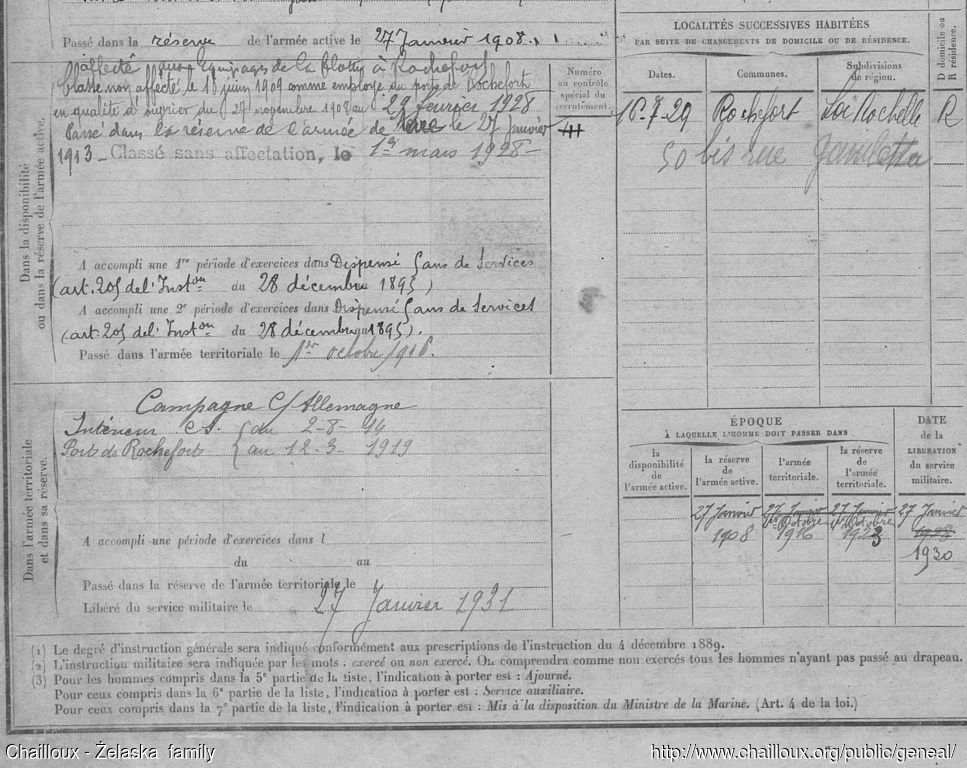 Passé dans la réserve de l'armée active le 27 Janvier 1908.
affecté aux Equipages de la flotte à Rochefort
Classé non affecté le 15 juin 1909 comme employé du port de Rochefort
en qualité d'ouvrier du 27 novembre 1908 au 29 fevrier 1928
Passé dans la réserve de l'armée de le 27 Janvier
1913 - Classé sans affectation, le 1er mars 1928 -
Dans la disponibilité
ou dans la réserve de l'armée active.
A accompli une 1re période d'exercices dans Dispensé 5 ans de Services
(art. 205 de l'Inston au 28 décembre 1895)
A accompli une 2e période d'exercices dans Dispensé 5 ans de Services
(art. 205 de l'Inston du 28 décembre 1895).
Passé dans l'armée territoriale le 1er octobre 1916.
Numéro
au contrôle
spécial du
recrutement.
LOCALITÉS SUCCESSIVES HABITÉES
PAR SUITE DE CHANGEMENTS DE DOMICILE OU DE RÉSIDENCE.
D domicile ou
R résidence.
Dates. Communes. Subdivisions
de région.
16-7-29 Rochefort La Rochelle R
50 bis rue Gambetta
Dans l'armée territoriale
et dans sa réserve.
Campagne C/ Allemagne
Intérieur C S. { du 2-8-14
Port de Rochefort { au 12-3-1919
A accompli une période d'exercices dans l
du au
Passé dans la réserve de l'armée territoriale le
Libéré du service militaire le 27 Janvier 1931
ÉPOQUE
À LAQUELLE L'HOMME DOIT PASSER DANS
DATE
de la
LIBÉRATION
du service
militaire.
la
disponibilité
de
l'armée active.
la réserve
de
l'armée active.
l'armée
territoriale.
la réserve
de
l'armée
territoriale.
27 Janvier 27 Janvier 27 Janvier 27 Janvier
1er Octobre 1er Octobre
1908 1916 1923 1928
1930
(1) Le degré d'instruction générale sera indiqué conformément aux prescriptions de l'instruction du 4 décembre 1889.
(2) L'instruction militaire sera indiquée par les mots : exercé ou non exercé. On comprendra comme non exercés tous les hommes n'ayant pas passé au drapeau.
(3) Pour les hommes compris dans la 5e partie de la liste, l'indication à porter est : Ajourné.
Pour ceux compris dans la 6e partie de la liste, l'indication à porter est : Service auxiliaire.
Pour ceux compris dans la 7e partie de la liste, l'indication à porter est : Mis à la disposition du Ministre de la Marine. (Art. 4 de la loi.)
Chailloux - Żelaska family
http://www.chailloux.org/public/geneal/